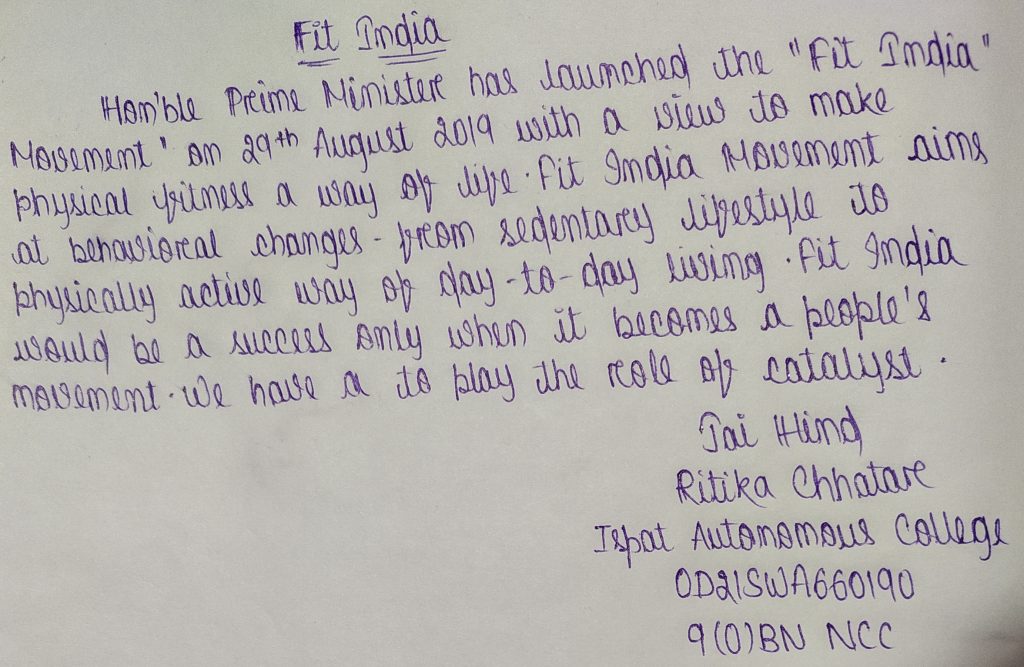 Fit India
Hon'ble Prime Minister has launched the "Fit India"
Movement" on 29th August 2019 with a view to make
physical fitness a way of life. Fit India Movement aims
at behavioral changes - from sedentary lifestyle to
physically active way of day-to-day living. Fit India
would be a success only when it becomes a people's
movement. We have a to play the role of catalyst.
Jai Hind
Ritika Chhatare
Ispat Autonomous College
OD21SWA660190
9(O)BN NCC